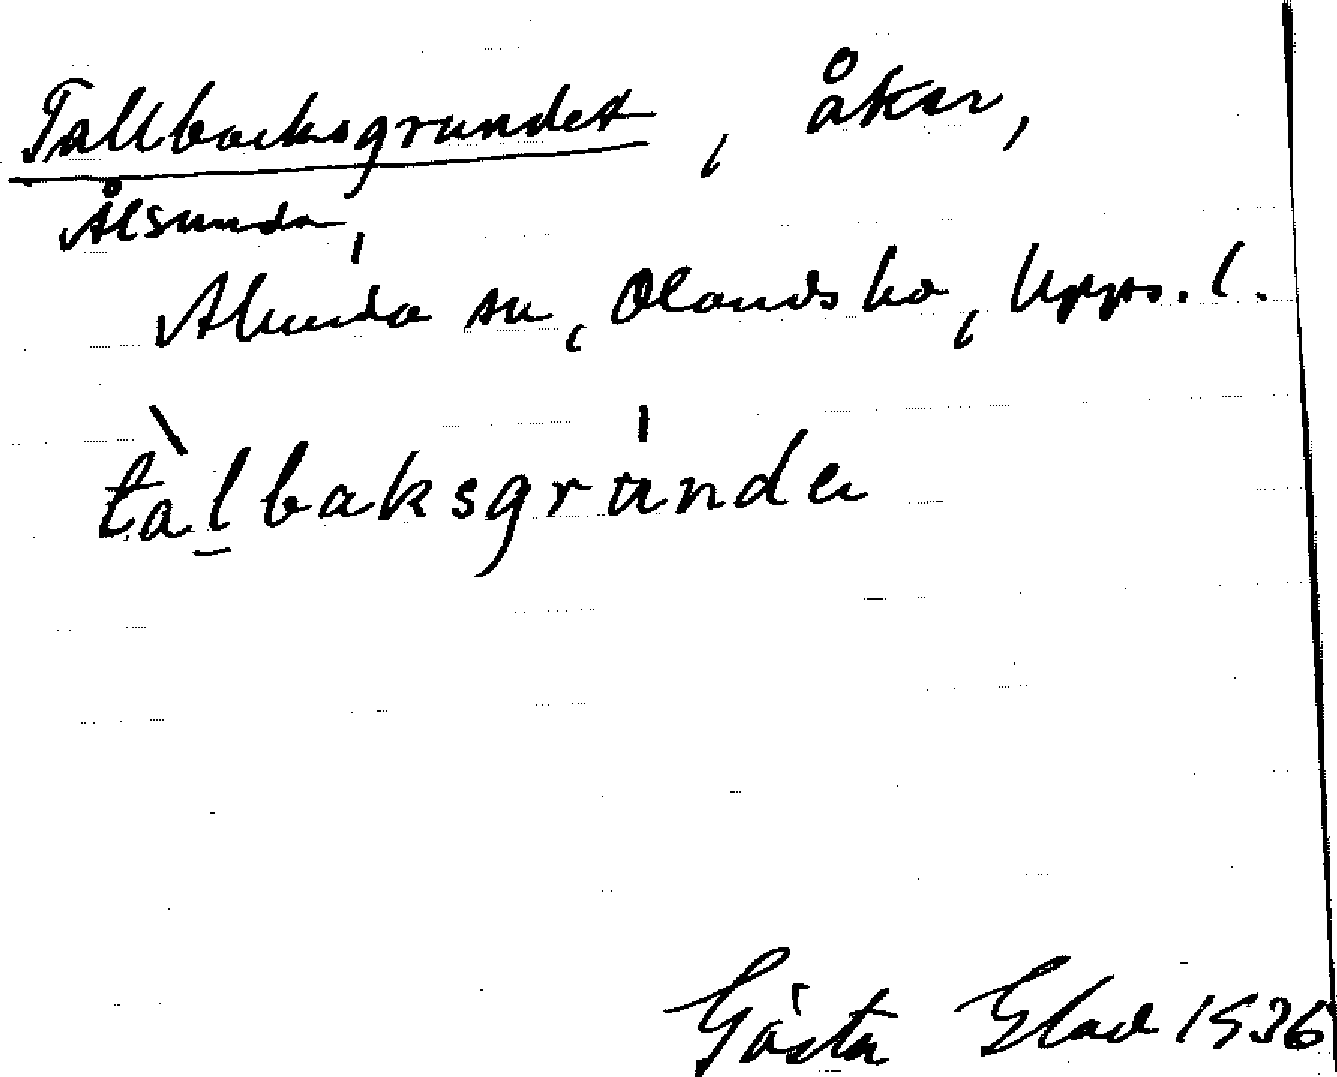 Tallbacksgrundet, åker,
Ålsunda,
Alunda sn, Olands hd, Upps. l.
tàl̠baksgrùndeͅ
Gösta Elad 1936